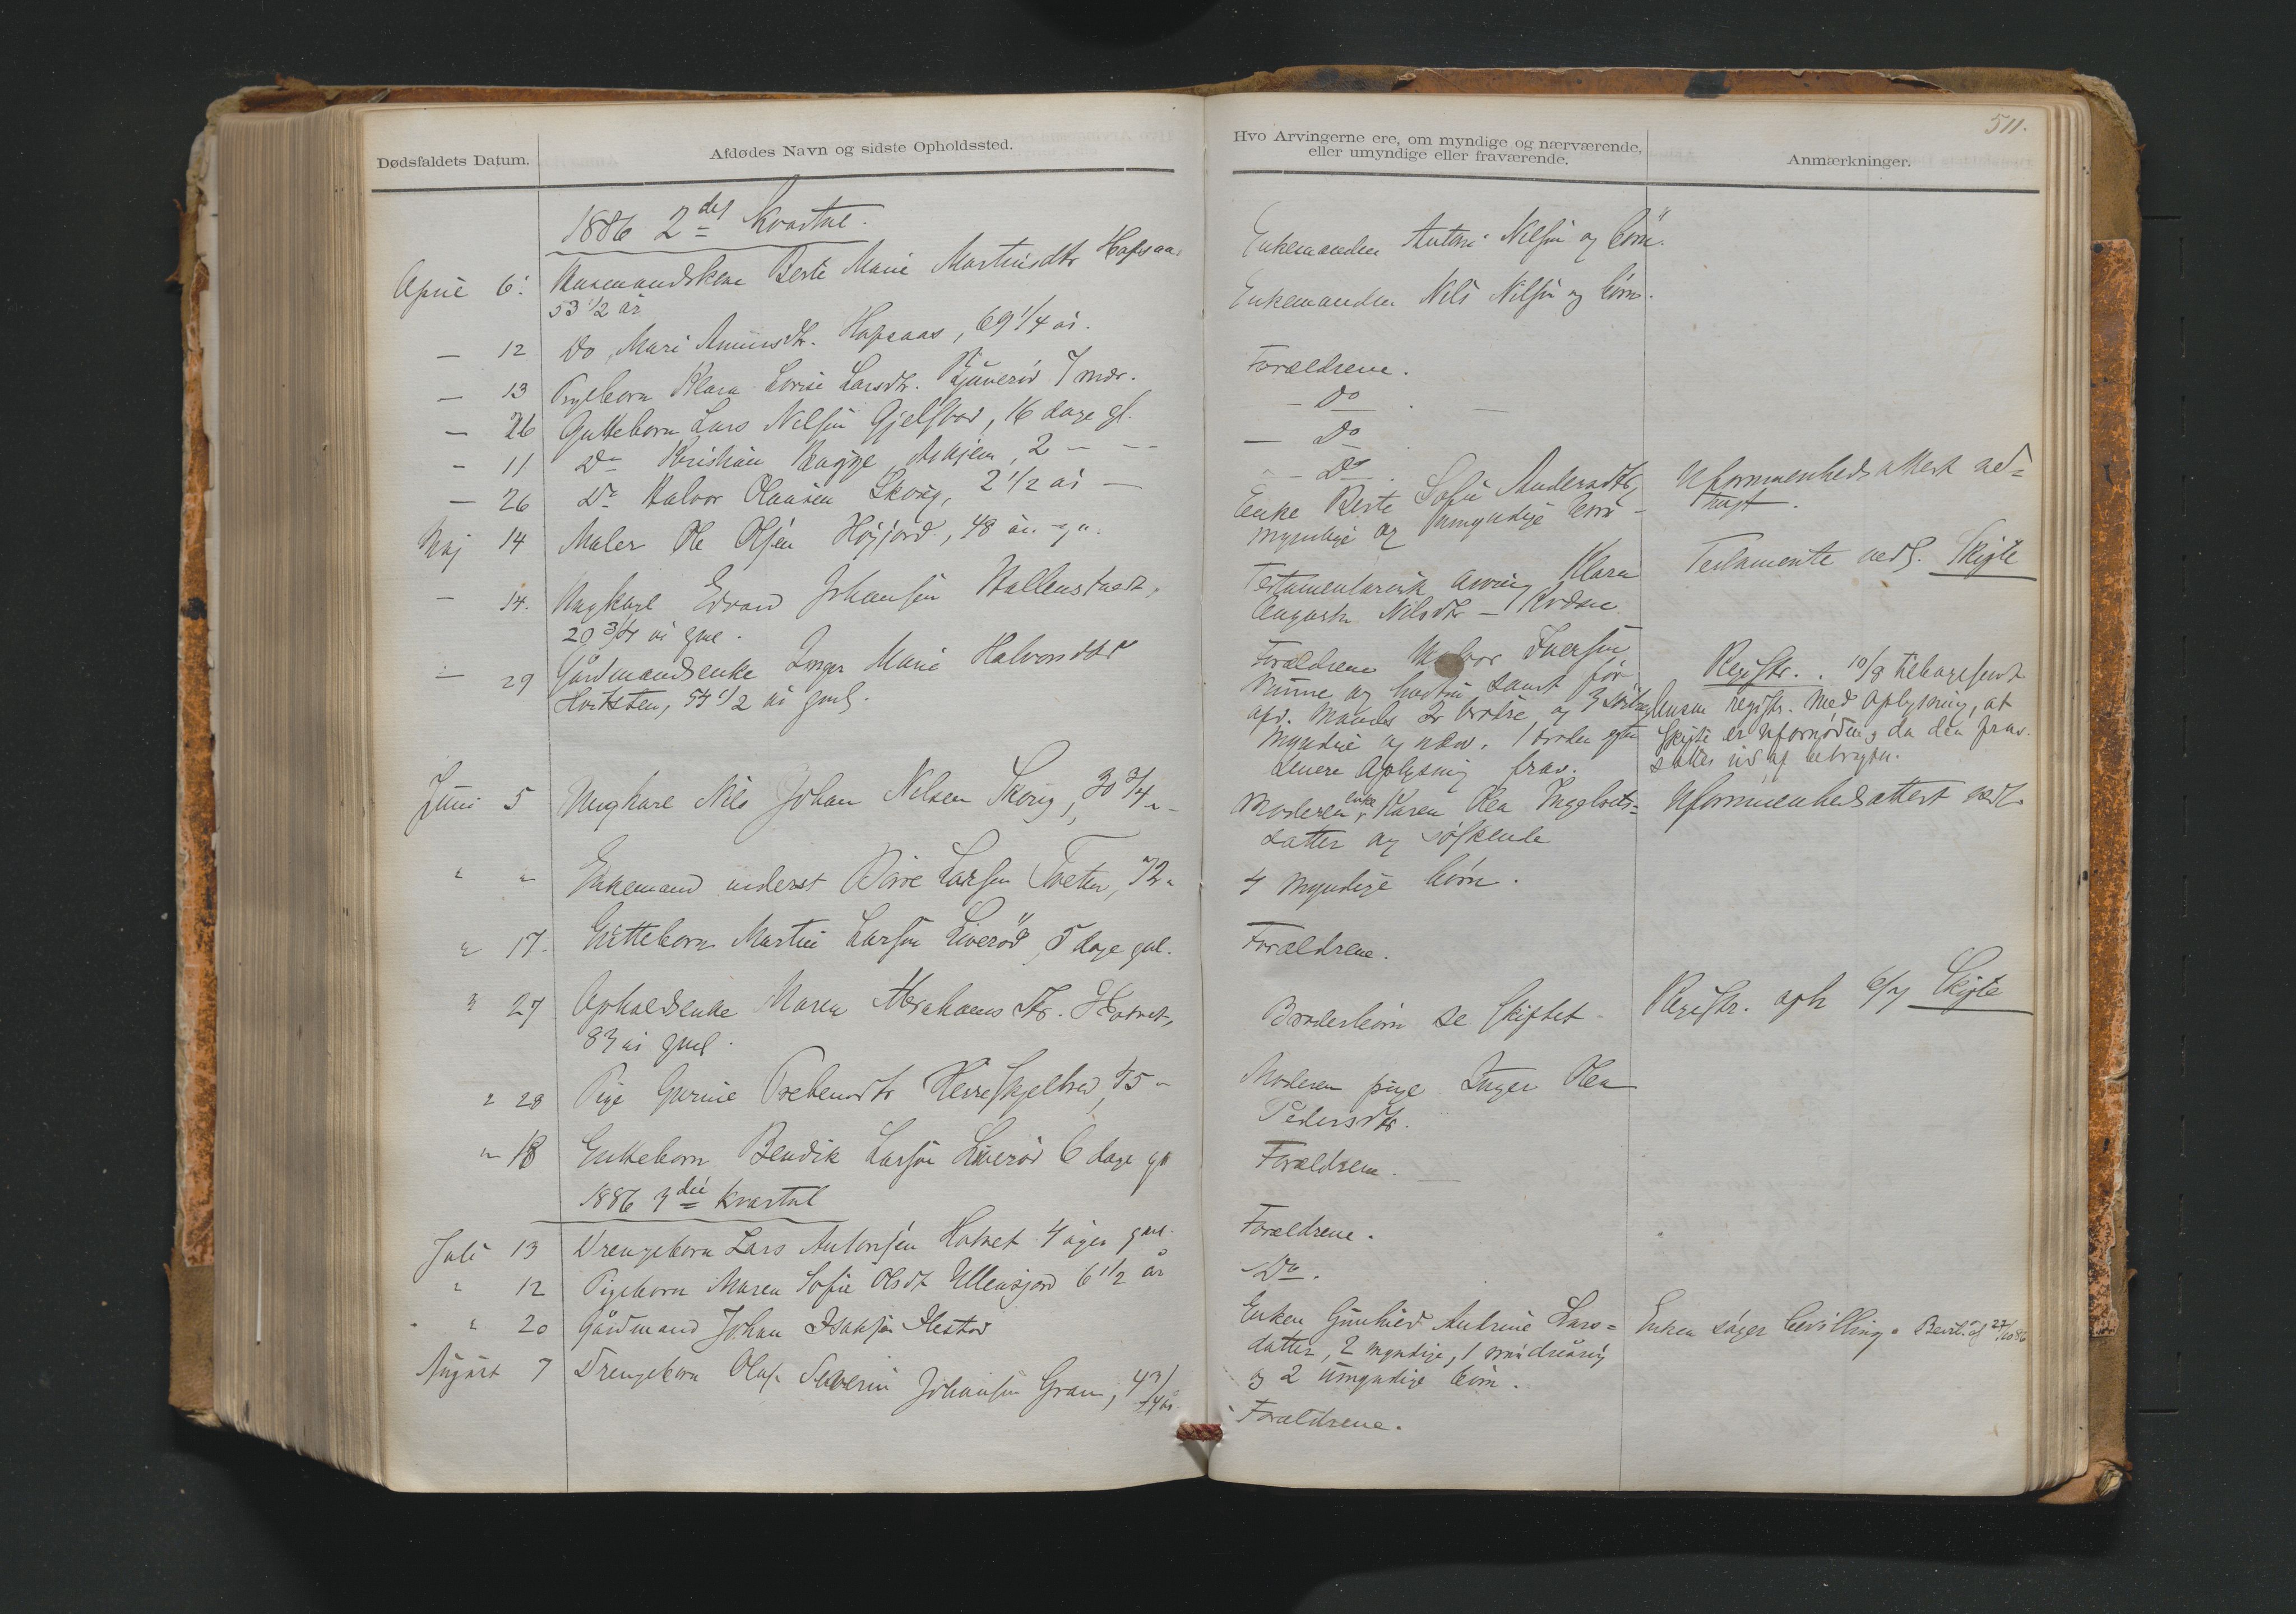 Dødsfaldets Datum.
Afdødes Navn og sidste Opholdssted.
1886 2det Kvartal.
April 6. Husmandskone Berte Marie Martinsdtr Hapsaas
53 1/2 år
— 12 Do Mari Amunsdtr. Hapsaas, 69 1/4 år.
— 13 Pigebarn Klara Lovise Larsdtr. 7 mdr.
— 26 Guttebarn Lars Nilsen 16 dage gl.
- 11 Do Kristian Askjem, 2 — —
— 26 Do Halvor Olausen Skoug, 2 1/2 år —
Maj 14 Maler Ole Olsen Høijord, 48 år
— 14. Ungkarl Edvard Johansen Hallenstvedt,
20 3/4 år gml.
— 29 Gårdmandsenke Inger Marie Halvorsdtr
54 1/2 år gml.
Juni 5 Ungkarl Nils Johan Nilsen Skoug, 30 3/4 "
" " Enkemand inderst Larsen Tveten, 72 "
" 17. Guttebarn Martin Larsen Liverød, 5 dage gml.
" 27 Opholdsenke Maren Abrahamsdtr. Hotvet,
83 år gml.
" 28 Pige Gurine Prebensdtr Herreskjelbred, 45 "
" 18 Guttebarn Bendik Larsen Liverød 6 dage gl
1886 3die Kvartal
Juli 13 Drengebarn Lars Antonsen Hotvet 4 uger gml.
" 12 Pigebarn Maren Sofie Olsdt 6 1/2 år
" 20 Gårdmand Johan Isaksen
August 7 Drengebarn Olaf Severin Johansen Gran, 4 3/4 år.
511.
Hvo Arvingerne ere, om myndige og nærværende,
eller umyndige eller fraværende.
Anmærkninger.
Enkemanden Anton Nilsen og børn.
Enkemanden Nils Nilsen og børn.
Forældrene.
— Do
— Do
— Do
Enke Berte Sofie Andersdtr, Uformuenhedsattest ned=
myndige og umyndige børn - lagt.
Testamentarisk arving Klara Testamente nedl. Skifte
Augusta Nilsdtr
Forældrene Halvor Iversen Registr. 10/8 tilbagesendt
og hustru samt før registr. med oplysning, at
afd. mands og 3 Skifte er ufornøden, da den frav.
myndige og nærv. 1
senere oplysning frav.
Moderen, enke Karen Olea Ingebrets= Uformuenhedsattest nedl.
datter og søskende
4 myndige børn.
Forældrene.
Broderbørn se skiftet. Registr. oph 6/7 Skifte
Moderen pige Inger Olea
Pedersdtr.
Forældrene.
Forældrene.
Do.
Enken Gunhild Andrine Lars= Enken søger bevilling. Bevil. af 27/10 86
datter, 2 myndige, 1 mindreårig
og 2 umyndige børn.
Forældrene.